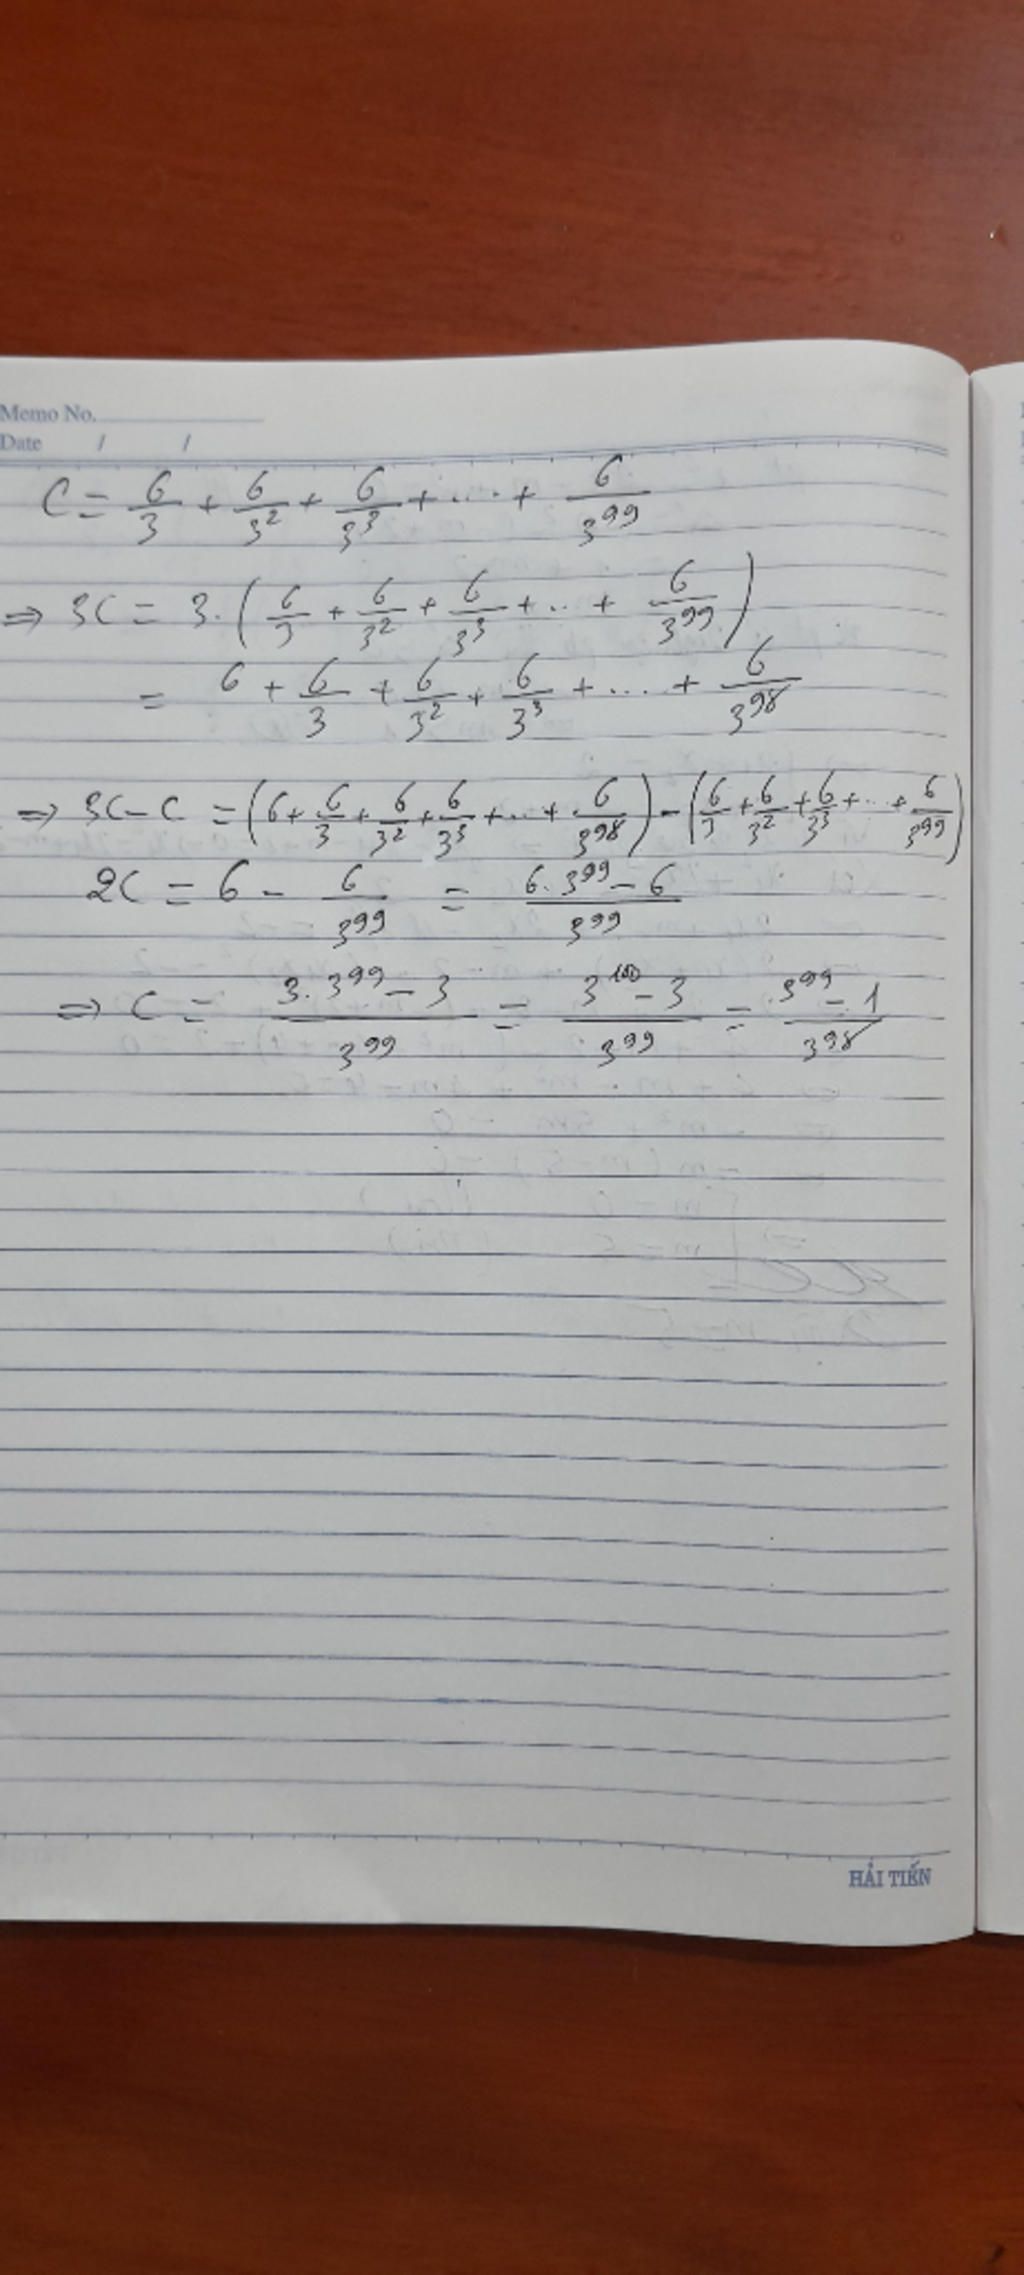 Memo No.
Date / /
C = 6/3 + 6/3² + 6/3³ + .... + 6/3⁹⁹
⇒ 3C = 3. (6/3 + 6/3² + 6/3³ + ... + 6/3⁹⁹)
= 6 + 6/3 + 6/3² + 6/3³ + .... + 6/3⁹⁸
⇒ 3C - C = (6 + 6/3 + 6/3² + 6/3³ + ... + 6/3⁹⁸) - (6/3 + 6/3² + 6/3³ + ... + 6/3⁹⁹)
2C = 6 - 6/3⁹⁹ = (6.3⁹⁹ - 6)/3⁹⁹
⇒ C = (3.3⁹⁹ - 3)/3⁹⁹ = (3¹⁰⁰ - 3)/3⁹⁹ = (3⁹⁹ - 1)/3⁹⁸
HẢI TIẾN